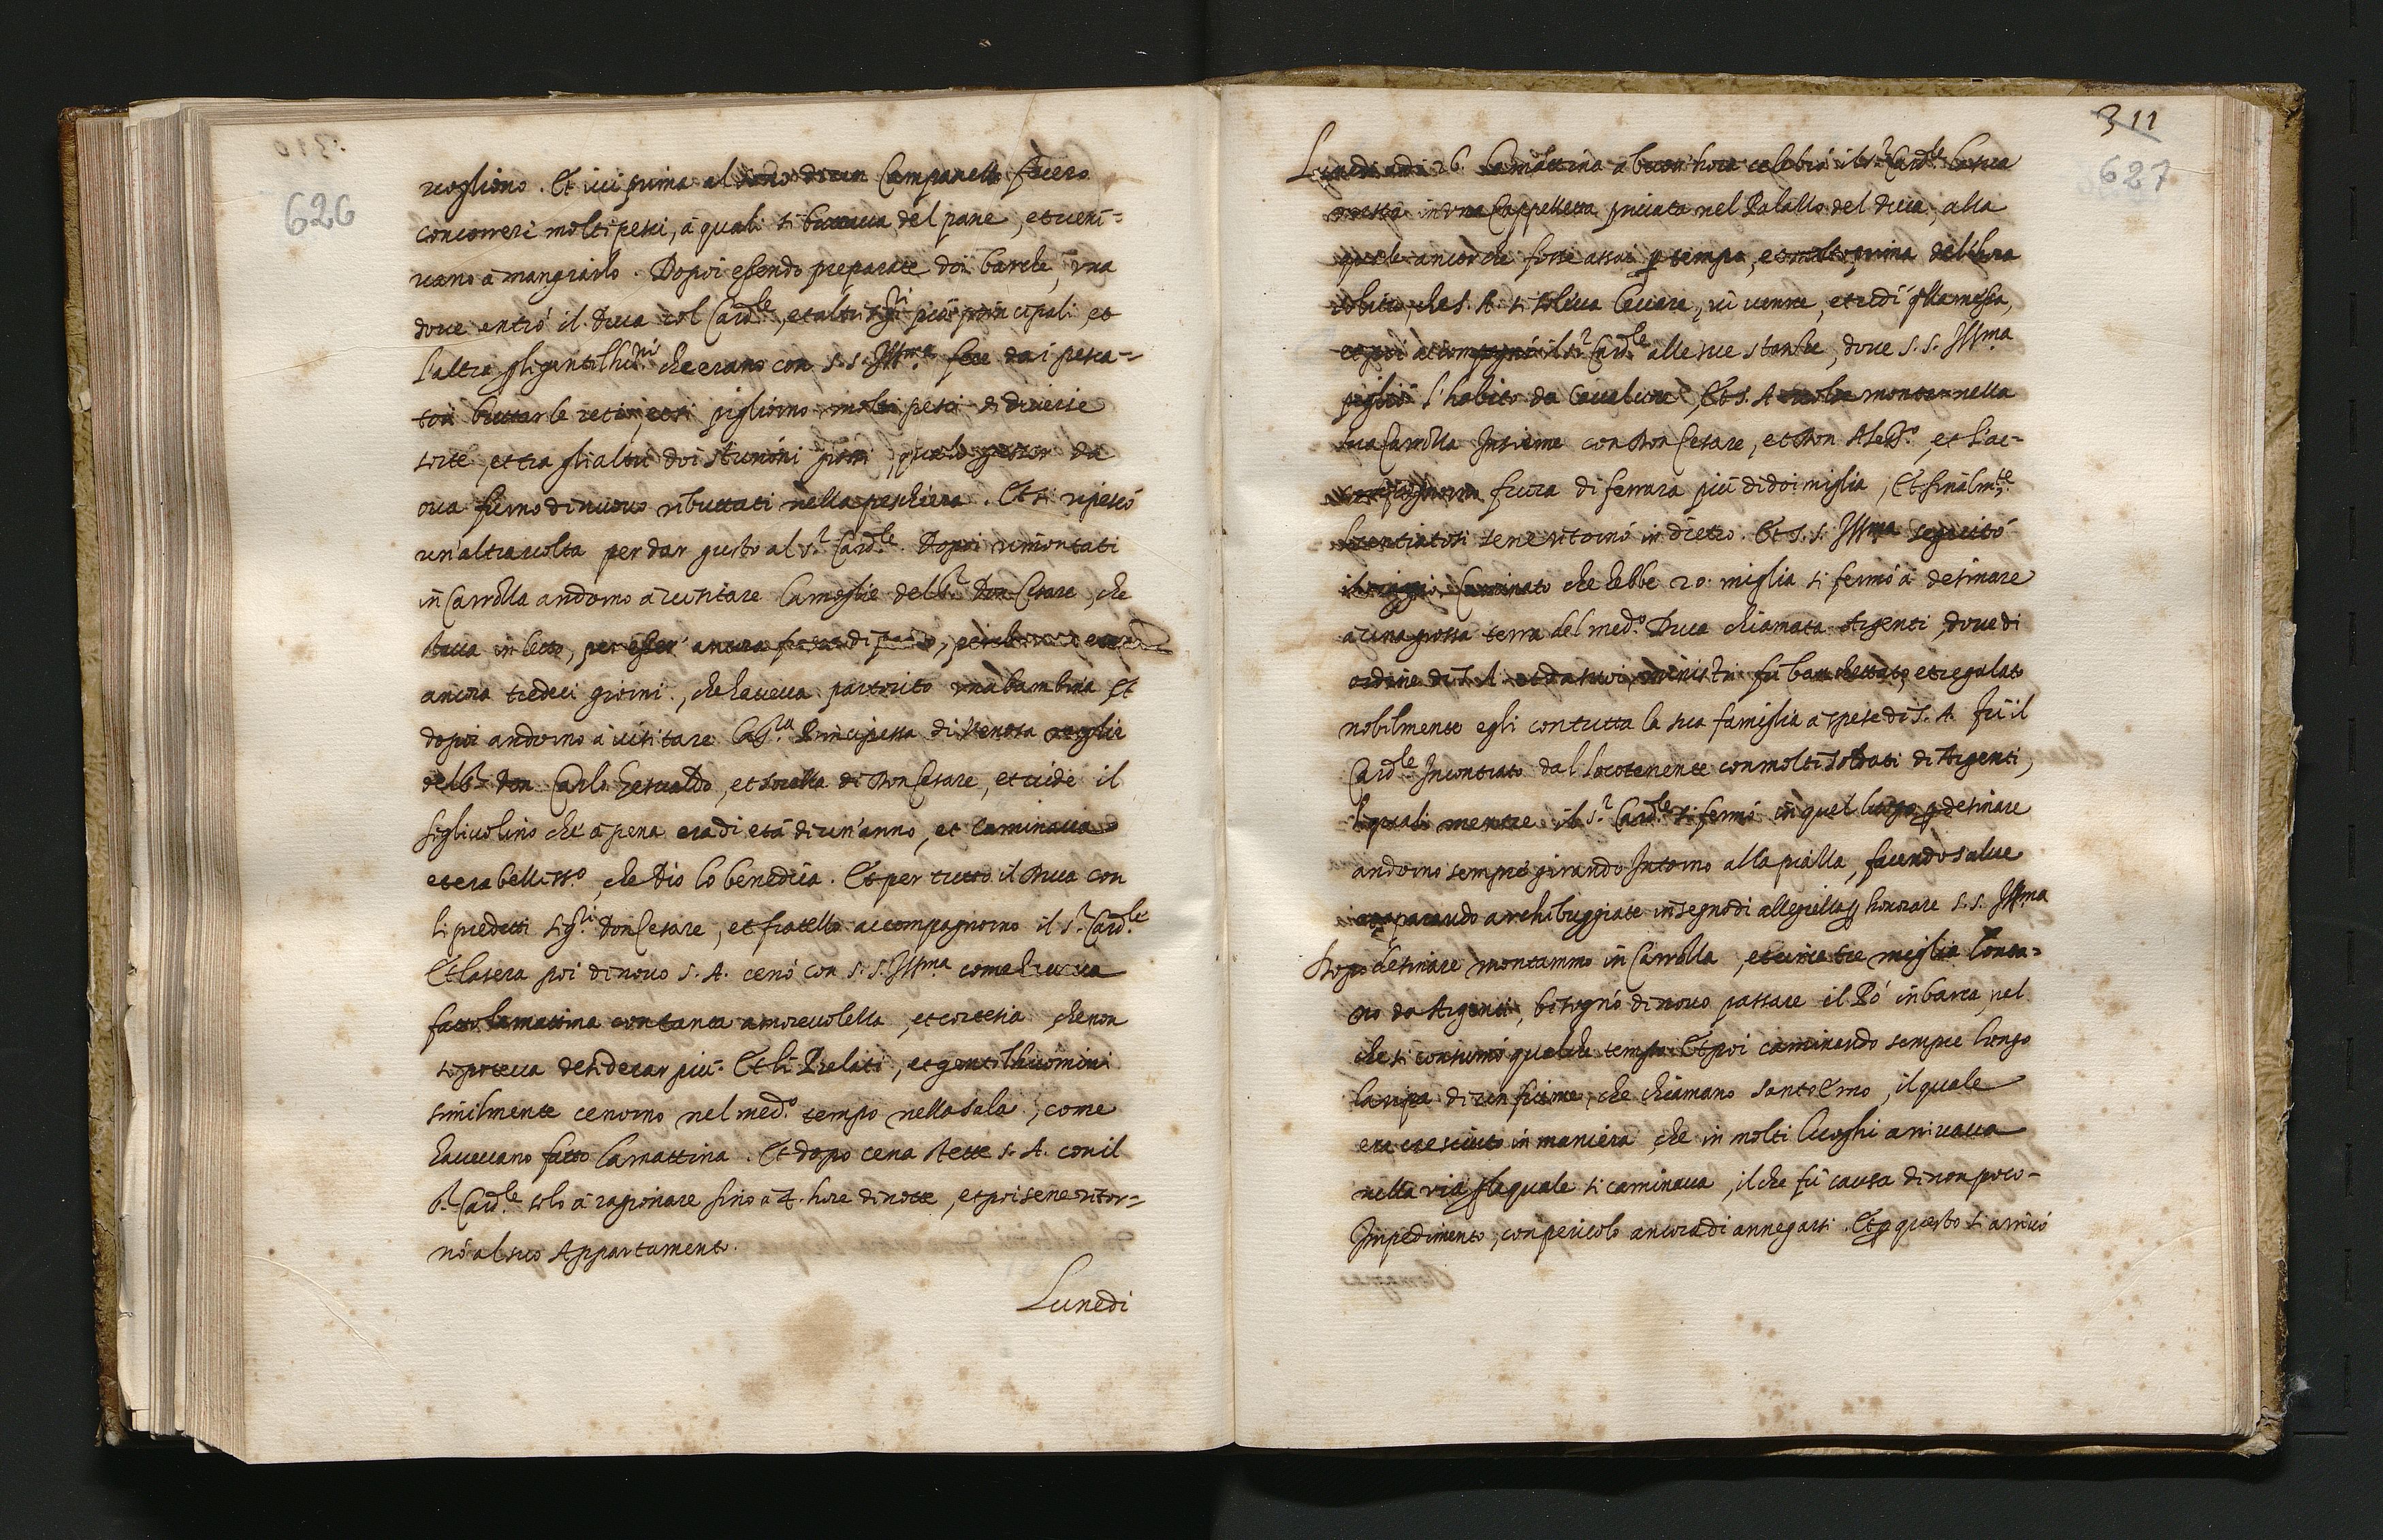 626
vogliono. Et ivi prima al suono di un Campanello fecero
concorrere molti pesci, à quali si buttava del pane, et veni-
vano à mangiarlo. Dopoi essendo preparate doi barche, una
dove entrò il Duca col Card.le, et altri sig.ri più principali, et
l'altra gli gentilhu.ni che erano con S. S. Ill.ma fece dai pesca-
tori buttar le reti, et si pigliorno molti pesci di diverse
sorte, et tra gli altri doi sturioni da
ova furno di nuovo ributtati nella peschiera. Et si ripescò
un'altra volta per dar gusto al s.r Card.le. Dopoi rimontati
in Carrozza andorno à visitare la moglie del s.r Don Cesare, che
stava in letto, per esser' ancora
ancora tredeci giorni, che haveva partorito una bambina et
dopoi andorno à visitare la s.ra Principessa di Venosa moglie
del s.r Don Carlo Gesualdo, et sorella di Don Cesare, et vide il
figliuolino che à pena era di età di un'anno, et caminava
et era belliss.o, che Dio lo benedica. Et per tutto il Duca con
li predetti sig.ri Don Cesare, et fratello accompagnorno il s.r Card.le
Et la sera poi di novo S. A. cenò con S. S. Ill.ma come haveva
fatto la mattina con tanta amorevolezza, et cortesia che non
si poteva desiderar più. Et li Prelati, et gentilhuomini
similmente cenorno nel med.o tempo nella sala, come
havevano fatto la mattina. Et dopo cena stette S. A. con il
s.r Card.le solo à ragionare sino à 4. hore di notte, et poi se ne ritor-
nò al suo Appartamento.
Lunedi
311
627
Lunedi adi 26. la mattina à buon'hora celebrò il s.r Card.le
messa in una Cappelletta privata nel Palazzo del Duca, alla
quale ancor che fosse assai p tempo, et molto prima dell'hora
solito, che S. A. si soleva levare, vi venne, et udì q.lla messa,
et poi accompagnò il s.r Card.le alle sue stanze, dove S. S. Ill.ma
pigliò l'habito da Cavalcare, Et S. A. montar nella
sua Carrozza Insieme con Don Cesare, et Don Aless.o, et l'ac-
compagnorno fuora di ferrara più di doi miglia, Et finalm.te
licentiatosi se ne ritornò in dietro. Et S. S. Ill.ma seguitò
il viaggio. Caminato che hebbe 20. miglia si fermò à desinare
à una grossa terra del med.o Duca chiamata Argenti, dove di
ordine di S. A. et da suoi ministri fù banchettato, et regalato
nobilmente egli con tutta la sua famiglia à spese di S. A. Fù il
Card.le Incontrato dal locotenente con molti soldati di Argenti,
li quali mentre il s.r Card.le si fermò in quel luogo p desinare
andorno sempre girando Intorno alla piazza, facendo salve
sparando archibuggiate in segno di allegrezza p honorare S. S. Ill.ma
Dopo desinare montammo in Carrozza, et circa tre miglia lonta-
no da Argenti, bisognò di novo passare il Pò in barca, nel
che si consumò qualche tempo. Et poi caminando sempre longo
la ripa di un fiume, che chiamano Santermo, il quale
era cresciuto in maniera, che in molti luoghi arrivava
nella via p la quale si caminava, il che fù causa di non poco
Impedimento, con pericolo ancora di annegarsi. Et p questo si arrivò